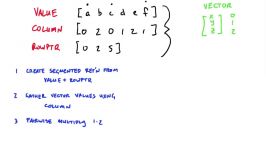 VALUE [a b c d e f]
COLUMN [0 2 0 1 2 1]
ROWPTR [0 2 5]
VECTOR
x 0
y 1
z 2
1 CREATE SEGMENTED REP'N FROM
VALUE + ROWPTR
2 GATHER VECTOR VALUES USING
COLUMN
3 PAIRWISE MULTIPLY 1·2